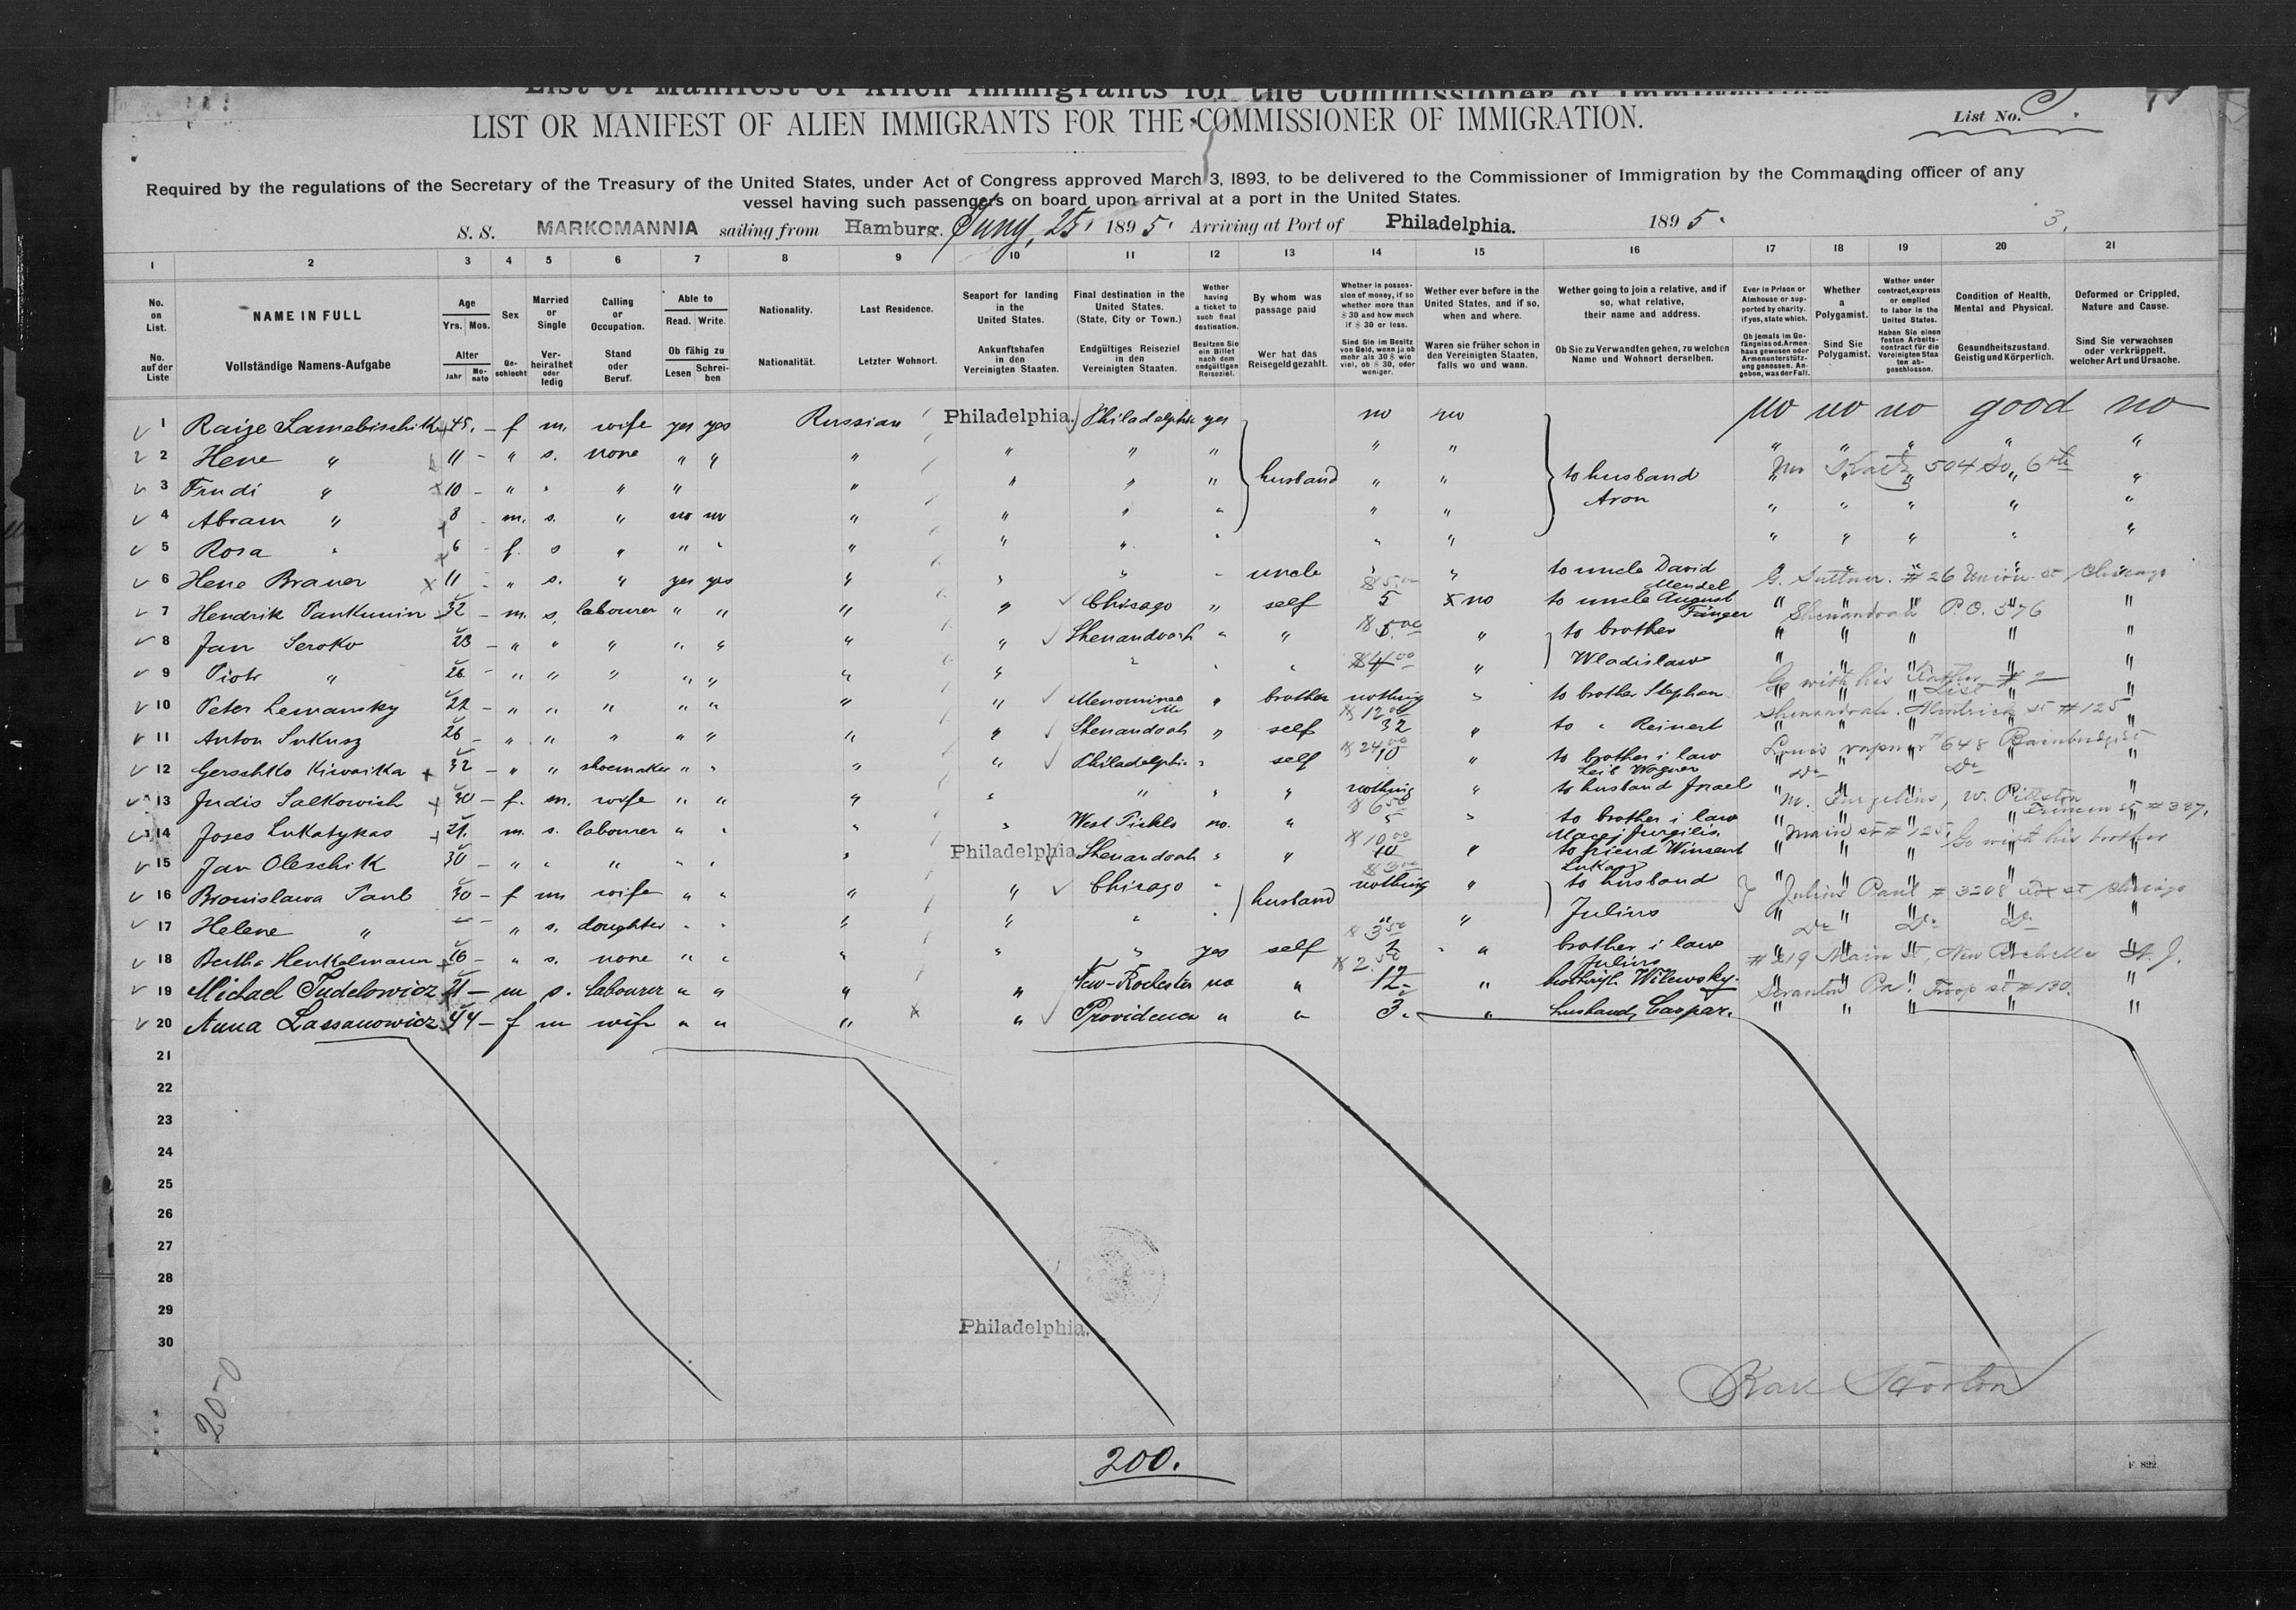 LIST OR MANIFEST OF ALIEN IMMIGRANTS FOR THE COMMISSIONER OF IMMIGRATION.
List No.
Required by the regulations of the Secretary of the Treasury of the United States, under Act of Congress approved March 3, 1893, to be delivered to the Commissioner of Immigration by the Commanding officer of any
vessel having such passengers on board upon arrival at a port in the United States.
S. S. MARKOMANNIA sailing from Hamburg. Juny, 25. 1895. Arriving at Port of Philadelphia. 1895. 3.
1 2 3 4 5 6 7 8 9 10 11 12 13 14 15 16 17 18 19 20 21
No. on List. No. auf der Liste
NAME IN FULL Vollständige Namens-Aufgabe
Age Yrs. Mos. Alter Jahr Monate
Sex Geschlecht
Married or Single Verheirathet oder ledig
Calling or Occupation. Stand oder Beruf.
Able to Read. Write. Ob fähig zu Lesen Schreiben
Nationality. Nationalität.
Last Residence. Letzter Wohnort.
Seaport for landing in the United States. Ankunftshafen in den Vereinigten Staaten.
Final destination in the United States. (State, City or Town.) Endgültiges Reiseziel in den Vereinigten Staaten.
Wether having a ticket to such final destination. Besitzen Sie ein Billet nach dem endgültigen Reiseziel.
By whom was passage paid Wer hat das Reisegeld gezahlt.
Whether in possession of money, if so whether more than $ 30 and how much if $ 30 or less. Sind Sie im Besitz von Geld, wenn ja ob mehr als 30 $ wie viel, ob $ 30, oder weniger.
Wether ever before in the United States, and if so, when and where. Waren sie früher schon in den Vereinigten Staaten, falls wo und wann.
Wether going to join a relative, and if so, what relative, their name and address. Ob Sie zu Verwandten gehen, zu welchen Name und Wohnort derselben.
Ever in Prison or Almhouse or supported by charity. if yes, state which. Ob jemals im Gefängniss od. Armenhaus gewesen oder Armenunterstützung genossen. Angeben, was der Fall.
Whether a Polygamist. Sind Sie Polygamist.
Wether under contract, express or emplied to labor in the United States. Haben Sie einen festen Arbeitscontract für die Vereinigten Staaten abgeschlossen.
Condition of Health, Mental and Physical. Gesundheitszustand. Geistig und Körperlich.
Deformed or Crippled, Nature and Cause. Sind Sie verwachsen oder verkrüppelt, welcher Art und Ursache.
1 Raize 45. - f m. wife yes yes Russian Philadelphia. Philadelphia yes no no no no no good no
2 Hene " 11 - " s. none " " " " " " " " " " " " "
3 Frudi " 10 - " " " " " " " " husband " " to husband Aron " " " " "
4 Abram " 8 - m. s. " no no " " " " " " " " " " "
5 Rosa " 6 - f. s " " " " " " " " " " " " " "
6 Hene Brauer 11 - " s. " yes yes " " " " uncle " " to uncle David Mendel
7 Hendrik Pankunin 32 - m. s. labourer " " " " Chicago " self $5.00 5 no to uncle August Fänger G. Suttner. #26 Union st Chicago
8 Jan Seroko 23 - " " " " " " " Shenandoah " " $5.00 " to brother Wladislaw Shenandoah P.O. 576
9 Piotr " 26 - " " " " " " " " " " $4.00 "
10 Peter Lemansky 22 - " " " " " " " Menominee " brother nothing " to brother Stephan Go with his brother List #2
11 Anton Sukusz 26 - " " " " " " " Shenandoah " self $12.00 32 " to " Reinert Shenandoah. st #125
12 Gerschko Kiwaitka 32 - " " shoemaker " " " " Philadelphia " self $24.00 10 " to brother i law Leib Wagner Louis #648 Bainbridge st
13 Judis Salkowich 30 - f. m. wife " " " " " " " nothing " to husband Israel Do Do
14 Joses Lukatykas 21. m. s. labourer " " " " West no. " $6.50 5 " to brother i law Macej Jurgilis W. Pittston #387.
15 Jan Oleschik 30 - " " " " " " Philadelphia Shenandoah " " $10.00 10 " to friend Winsent Lukasz Main st #125. Go with his brother
16 Bronislawa Paul 30 - f m wife " " " " Chicago " husband $3.00 nothing " to husband Julius Julius Paul #3208 st Chicago
17 Helene " - - " s. doughter " " " " " " " " Do Do Do
18 Bertha Henkelmann 16 - " s. none " " " " " yes self $3.50 " " brother i law Julius
19 Michael Judelowicz 21 - m s. labourer " " " " New-Rochester no " $2.50 12.- " Wilewsky. #219 Main st, New Rochelle N. J.
20 Anna Lassanowicz 44 - f m wife " " " " Providence " " 3. " husband, Caspar. Scranton Pa. Troop st #130.
21
22
23
24
25
26
27
28
29
30
Philadelphia.
20-0
200.
F. 822